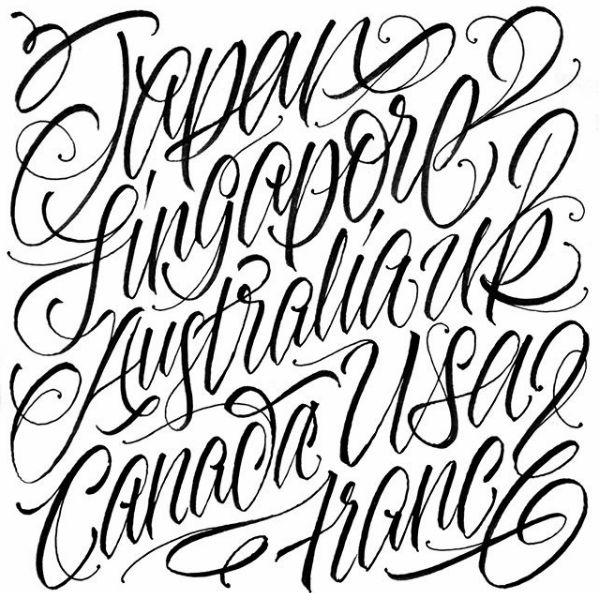 Japan
Singapore
Australia UK
Canada USA
france